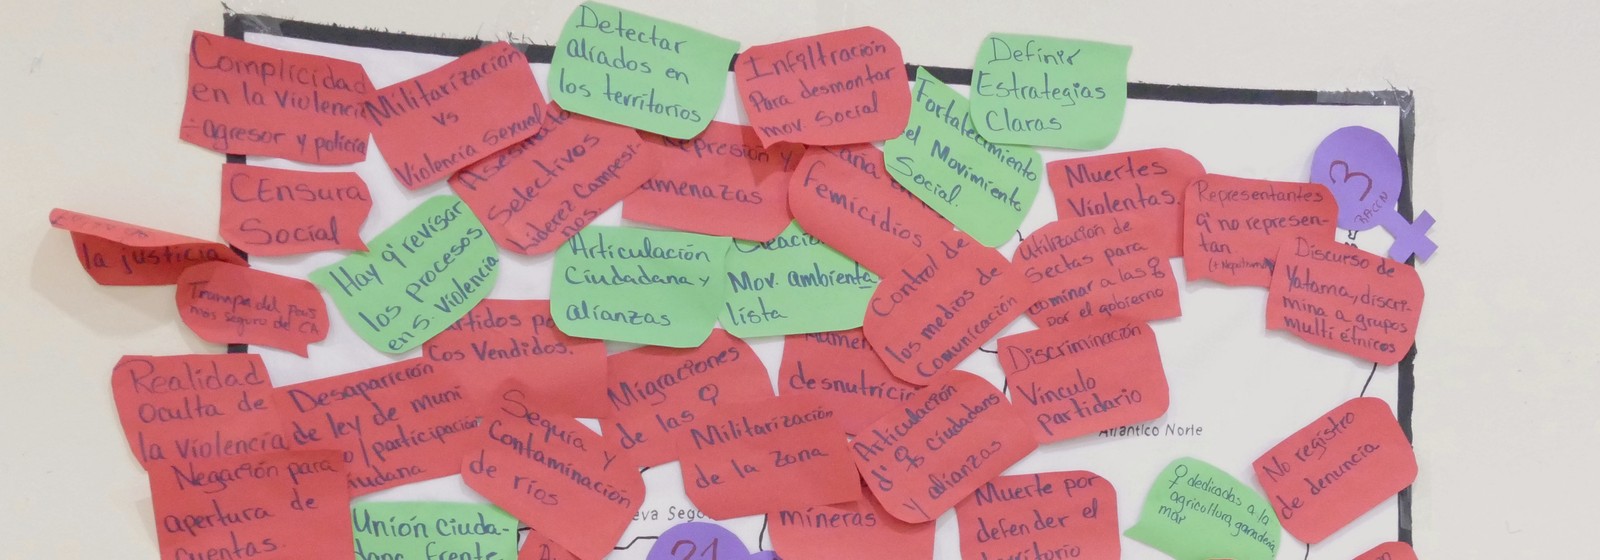 Complicidad
en la violencia
- agresor y policía
Militarización
vs
Violencia Sexual
Detectar
aliados en
los territorios
Infiltración
Para desmontar
mov. Social
Definir
Estrategias
Claras
Fortalecimiento
del Movimiento
Social.
Selectivos
Liderez Campesi-
nos.
Represión y
amenazas
femicidios
Muertes
Violentas.
Representantes
q' no represen-
tan
3
RACCN
Censura
Social
la justicia
Hay q' revisar
los procesos
en s. violencia
Articulación
Ciudadana y
alianzas
Mov. ambienta
lista
Control de
los medios de
Comunicación
Utilización de
Sectas para
dominar a las ♀
por el gobierno
Discurso de
Yatama, discri-
mina a grupos
multi étnicos
Trampa del País
más seguro de CA
Partidos polí
cos Vendidos.
Realidad
Oculta de
la Violencia
Desaparición
de ley de muni
/participación
iudadana
Sequía y
Contaminación
de ríos
Migraciones
de las ♀
desnutrici
Militarización
de la Zona
Articulación
d' ♀♀ ciudadans
y alianzas
Discriminación
Vínculo
partidario
Atlántico Norte
No registro
de denuncia
Negación para
apertura de
cuentas.
Unión Ciuda-
dana frente
eva Sego
21
mineras
Muerte por
defender el
territorio
♀ dedicadas a la
agricultura, ganadería
mar